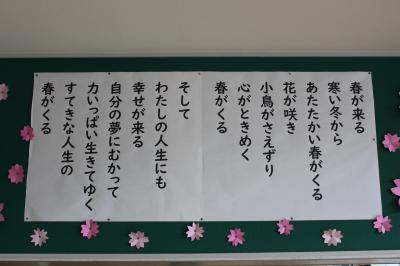 春が来る
寒い冬から
あたたかい春がくる
花が咲き
小鳥がさえずり
心がときめく
春がくる
そして
わたしの人生にも
幸せが来る
自分の夢にむかって
力いっぱい生きてゆく
すてきな人生の
春がくる